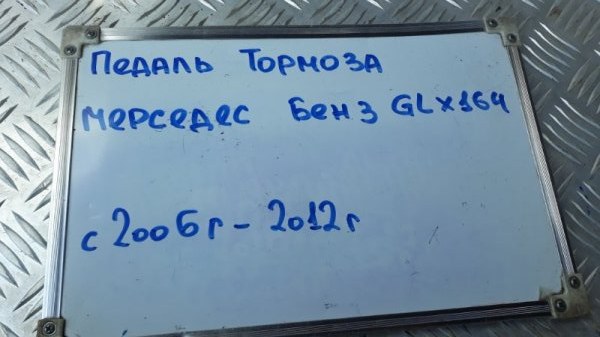 Педаль Тормоза
мерседес Бенз GLX164
с 2006г - 2012г